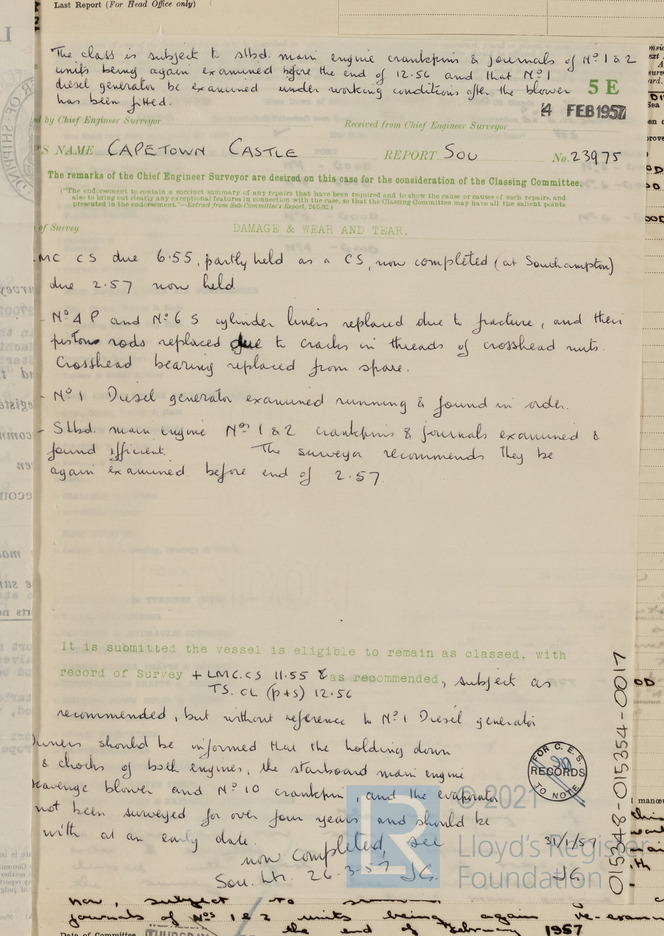 Last Report (For Head Office only)
The class is subject to stbd. main engine crankpins & journals of Nº 1 & 2
units being again examined before the end of 12.56 and that Nº 1
diesel generator be examined under working conditions after the blower
has been fitted.
5 E
4 FEB 1957
d by Chief Engineer Surveyor
Received from Chief Engineer Surveyor
'S NAME CAPETOWN CASTLE REPORT Sou No. 23975
The remarks of the Chief Engineer Surveyor are desired on this case for the consideration of the Classing Committee.
("The endorsement to contain a succinct summary of any repairs that have been required and to show the cause or causes of such repairs, and
also to bring out clearly any exceptional features in connection with the case, so that the Classing Committee may have all the salient points
presented in the endorsement."—Extract from Sub-Committee's Report,
of Survey DAMAGE & WEAR AND TEAR.
MC CS due 6.55, partly held as a CS, now completed (at Southampton)
due 2.57 now held
- Nº 4 P and Nº 6 S cylinder liners replaced due to fracture, and their
piston rods replaced due to cracks in threads of crosshead nuts.
Crosshead bearing replaced from spare.
- Nº 1 Diesel generator examined running & found in order.
- Stbd. main engine Nºs 1 & 2 crankpins & journals examined &
found efficient. The surveyor recommends they be
again examined before end of 2.57.
It is submitted the vessel is eligible to remain as classed, with
record of Survey + LMC.CS 11.55 & as recommended, subject as
TS. CL (p+s) 12.56
recommended, but without reference to Nº 1 Diesel generator
Owners should be informed that the holding down
& chocks of both engines, the starboard main engine
scavenge blower and Nº 10 crankpin, and the evaporator
not been surveyed for over four years and should be
with at an early date.
31/1/57
JG.
now completed, see
Sou. Lth. 26-3-57 JG.
FOR C.E.S.
RECORDS
TO NOTE
015348-015354-0017
© 2021
Lloyd's Register
Foundation
now, subject to
journals of Nºs 1 & 2 units being again re-exam
the end of February 1957
Date of Committee